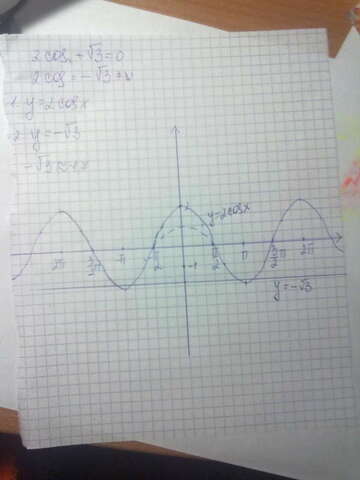 2cosx + √3 = 0
2cos = -√3
1. y = 2cosx
2. y = -√3
-√3 ≈
2
y=2cosx
2π 3/2π -π π/2 π/2 π 3/2π 2π
-1
y=-√3